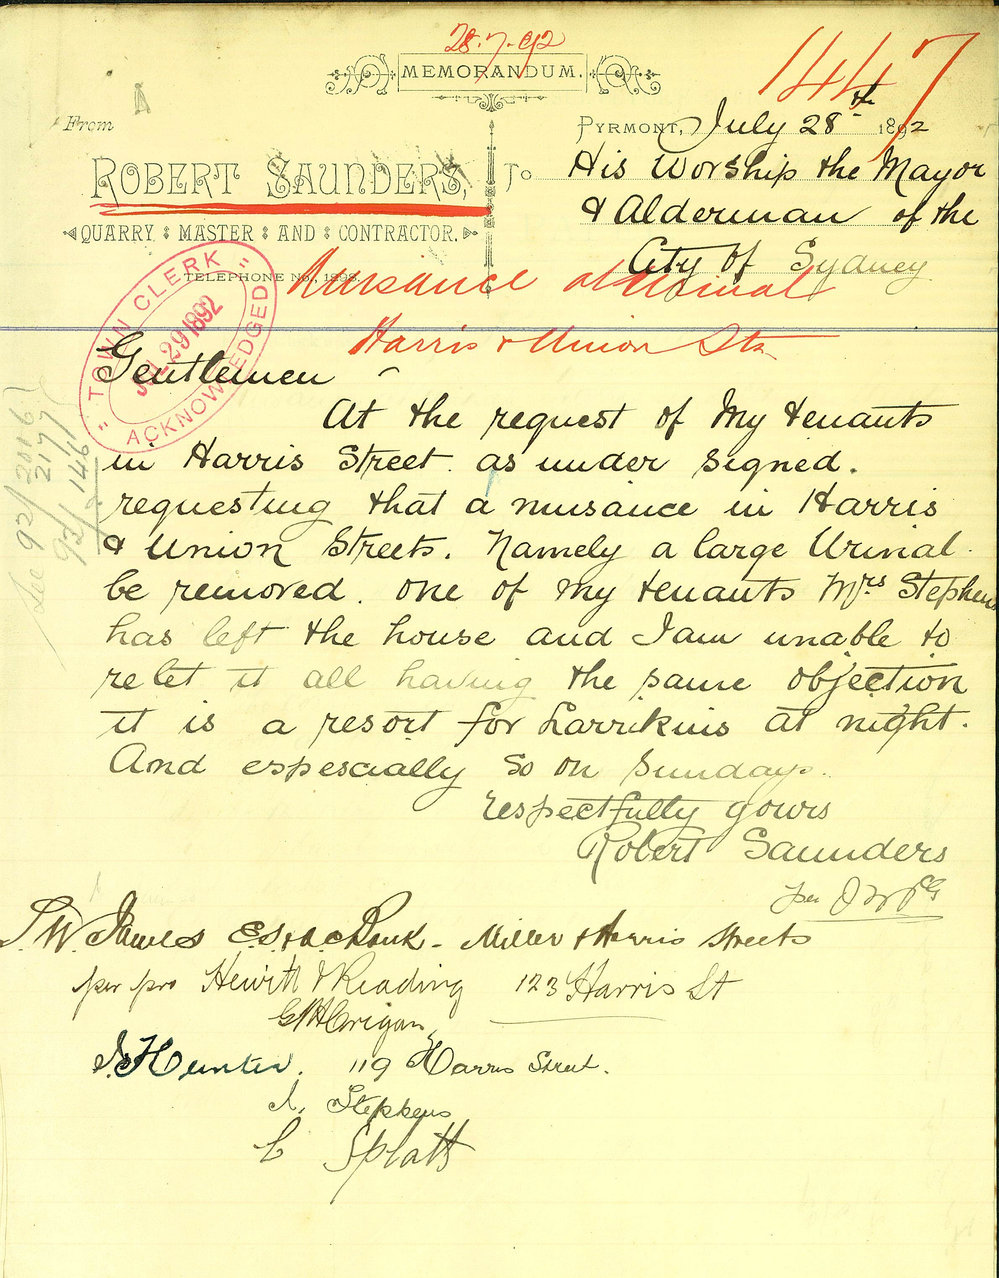 28.7.92
MEMORANDUM.
1447
From
PYRMONT, July 28th 1892
ROBERT SAUNDERS,
QUARRY MASTER AND CONTRACTOR.
TELEPHONE No. 1898.
To His Worship the Mayor
& Alderman of the
City of Sydney
Nuisance at Urinal
Harris & Union Sts
TOWN CLERK
JUL 29 1892
ACKNOWLEDGED
See 92/2016
2177
92/146
Gentlemen
At the request of My tenants
in Harris Street. as under signed.
requesting that a nusance in Harris
& Union Streets. Namely a large Urinal.
be removed. one of my tenants Mrs Stephens
has left the house and I am unable to
relet it all having the same objection
it is a resort for Larrikins at night.
And espescially so on Sunday.
respectfully yours
Robert Saunders
per
T. W. James E.S. & A.C Bank - Miller & Harris Streets
per pro Hewitt & Reading 123 Harris St
Hunter. 119 Harris Street.
Stephens
C Splatt